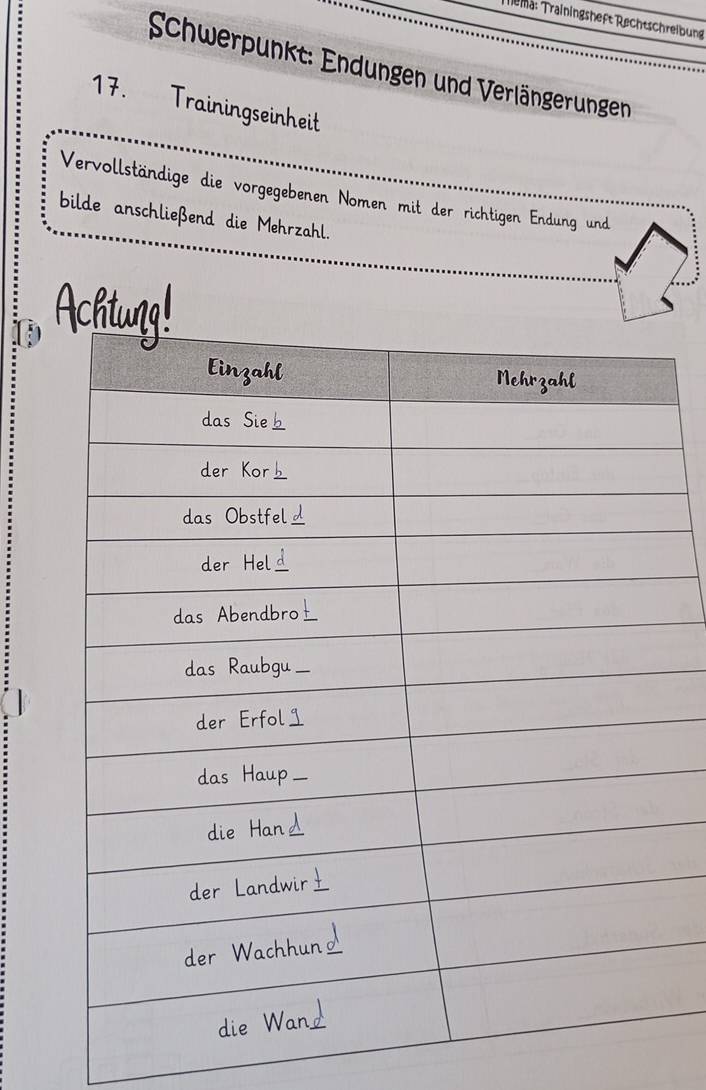 Thema: Trainingsheft Rechtschreibung
Schwerpunkt: Endungen und Verlängerungen
17. Trainingseinheit
Vervollständige die vorgegebenen Nomen mit der richtigen Endung und
bilde anschließend die Mehrzahl.
Achtung!
Einzahl Mehrzahl
das Sieb
der Korb
das Obstfeld
der Held
das Abendbrot
das Raubgu_
der Erfolg
das Haup_
die Hand
der Landwirt
der Wachhund
die Wand